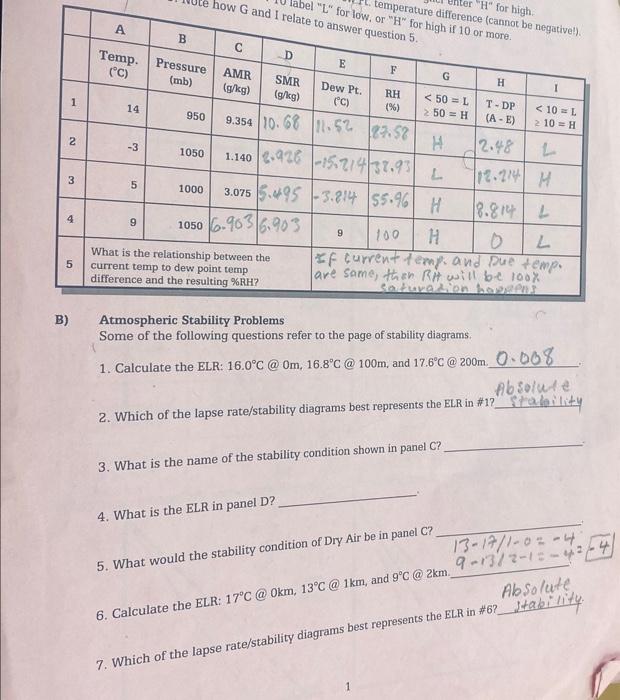 "H" for high.
label "L" for low, or "H" for high if 10 or more.
temperature difference (cannot be negative!).
Note how G and I relate to answer question 5.
A B C D E F G H I
Temp. (°C) Pressure (mb) AMR (g/kg) SMR (g/kg) Dew Pt. (°C) RH (%) < 50 = L ≥ 50 = H T - DP (A - E) < 10 = L ≥ 10 = H
1 14 950 9.354 10.68 11.52 87.58 H 2.48 L
2 -3 1050 1.140 2.926 -15.214 38.93 L 12.214 H
3 5 1000 3.075 5.495 -3.814 55.96 H 8.814 L
4 9 1050 6.903 6.903 9 100 H 0 L
5 What is the relationship between the
current temp to dew point temp
difference and the resulting %RH?
If current temp. and Due temp.
are same, then RH will be 100%
saturation happens
B) Atmospheric Stability Problems
Some of the following questions refer to the page of stability diagrams.
1. Calculate the ELR: 16.0°C @ 0m, 16.8°C @ 100m, and 17.6°C @ 200m. 0.008
2. Which of the lapse rate/stability diagrams best represents the ELR in #1? Absolute
stability
3. What is the name of the stability condition shown in panel C?
4. What is the ELR in panel D?
5. What would the stability condition of Dry Air be in panel C?
13-17/1-0 = -4
9-13/2-1 = -4 = -4
6. Calculate the ELR: 17°C @ 0km, 13°C @ 1km, and 9°C @ 2km.
7. Which of the lapse rate/stability diagrams best represents the ELR in #6? Absolute
stability.
1